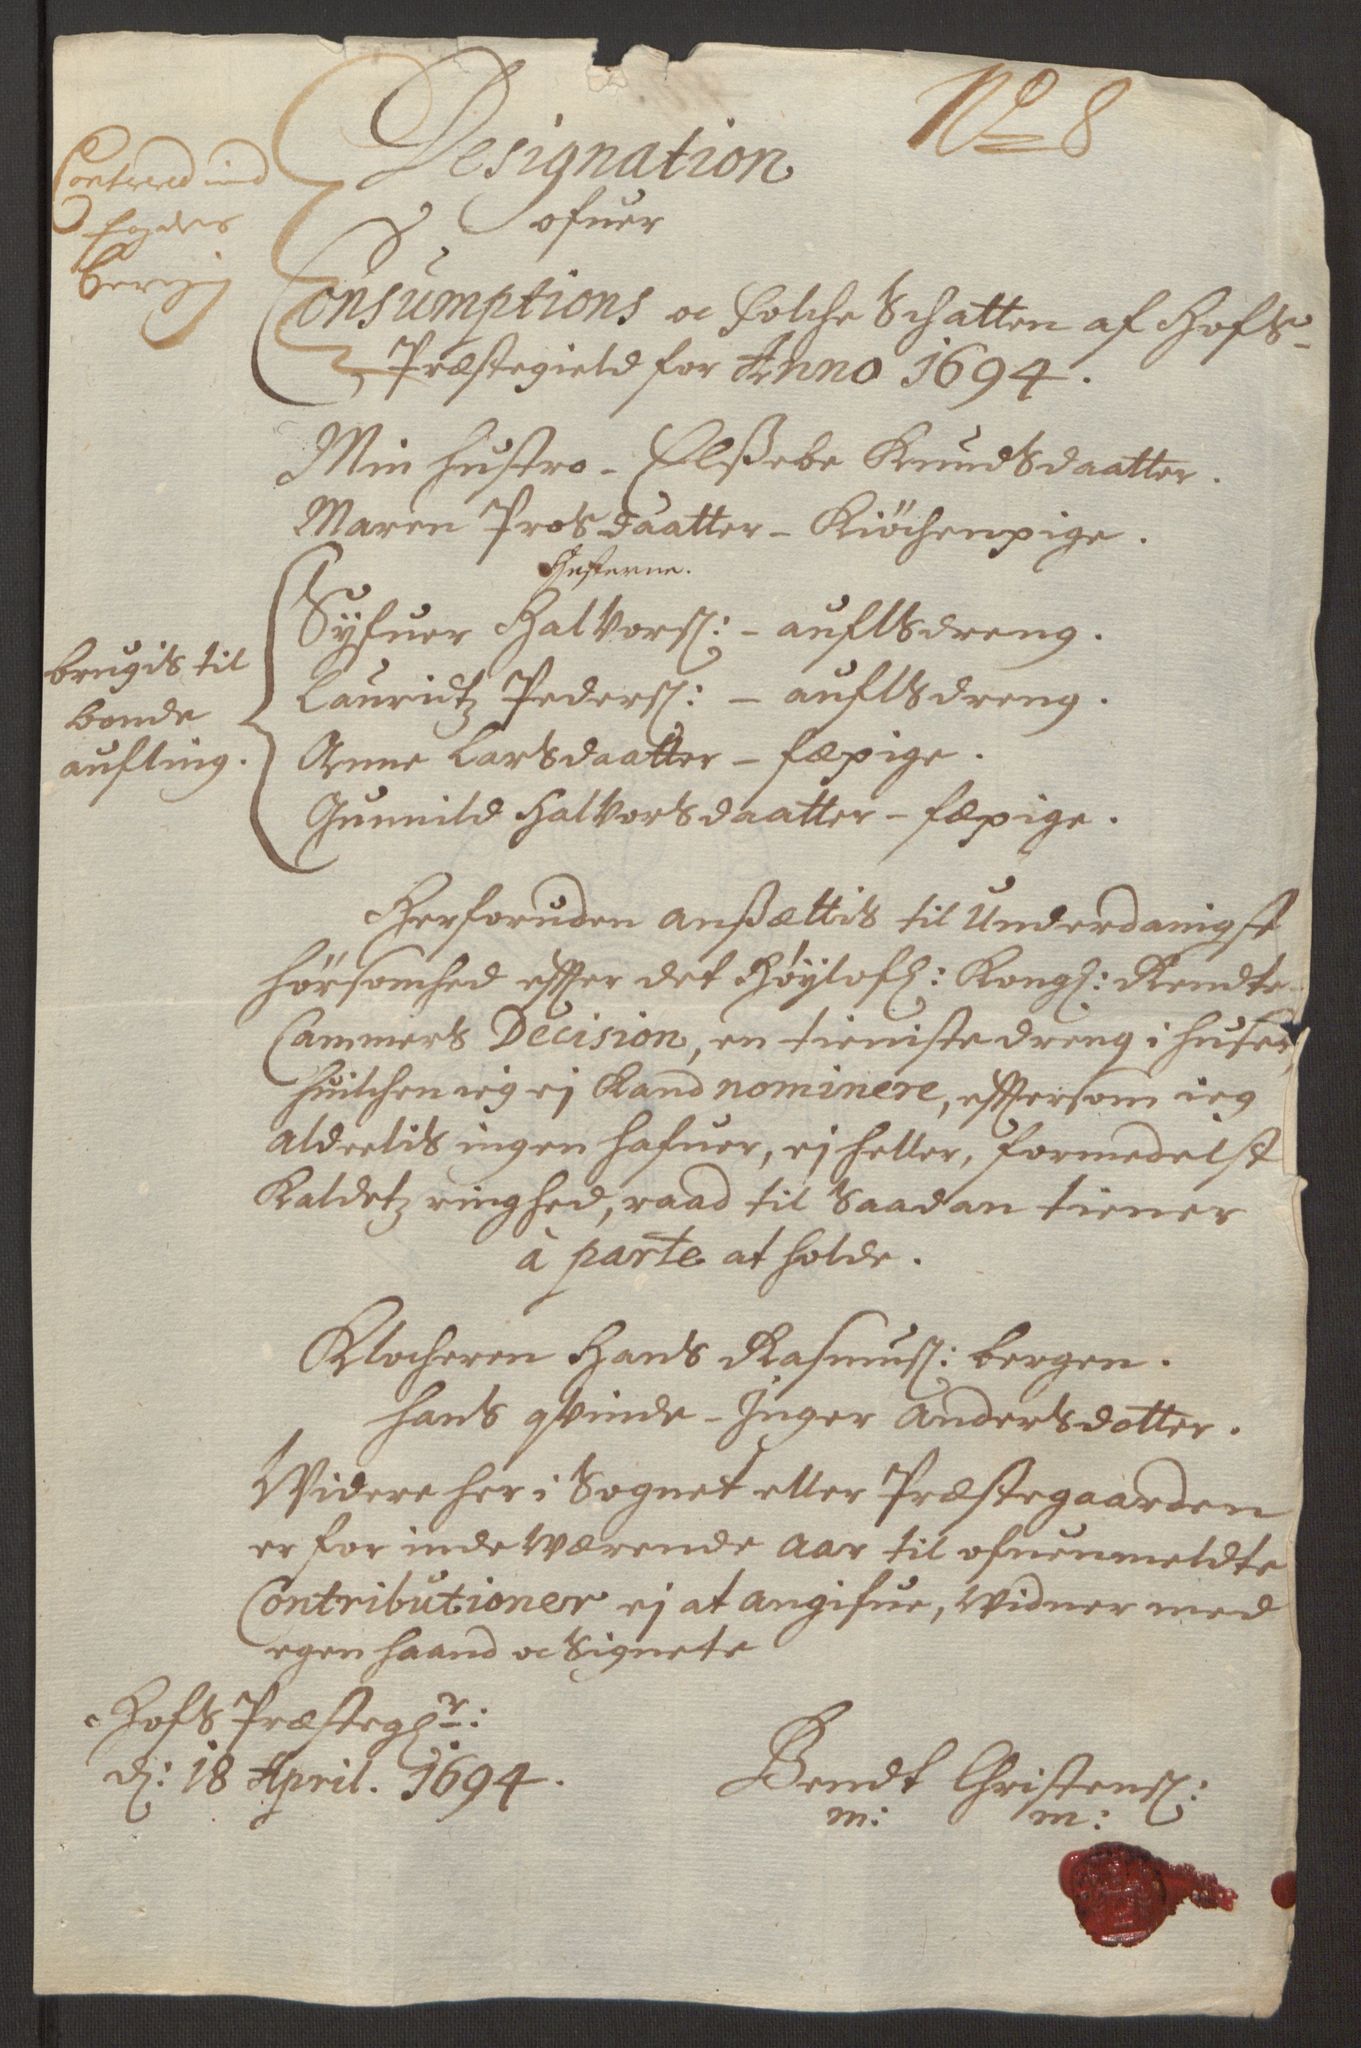 No 8
Designation
ofuer
Consumptions oc Folche Schatten af Hofs-
Præstegield for Anno 1694.
Min hustro - Elßebe Knudsdaatter.
Maren Prosdaatter - Kiöchenpige.
brugis til
bonde
aufling.
Syfuer Halvors: - auflsdreng.
Lauridtz Peders: - auflsdreng.
Anne Larsdaatter - fæpige.
Gunnild Halvorsdaatter - fæpige.
Herforuden anßættis til Underdanigst
hörsomhed effter det Höylofl: Kongl: Rendte-
Cammers Decision, en tieniste dreng i huset,
huilchen ieg ej Kand nominere, efftersom ieg
aldeelis ingen hafuer, ej heller, formedelst
Kaldetz ringhed, raad til Saadan tiener
à parte at holde.
Klocheren Hans Rasmus: bergen.
hans qvinde - Inger Andersdotter.
Widere her i Sognet eller Præstegaarden
er for indeværende Aar til ofuenmeldte
Contributioner ej at angifue, Widner med
egen haand oc Signete
Hofs Præstegl:
d: 18 April. 1694.
Bendt Christens:
m: m: